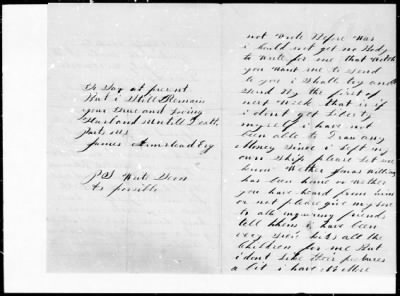 To Say at present
But i Still Remain
your True and Loving
Husband untill Death
parts us
James Armstead Esq
PS Write Soon
As possible
not Wrote Before Was
i Could not get no Body
to Write for me that Witch
you Want me to Send
to you i Shall try and
Send By the first of
next Week that is if
i dont get Liberty
myself i have not
Been able to Draw any
Money Since i Left my
own Ship please Let me
know Wether
has Came home or Wether
you have heard from him
or not please give my love
to all inquiring friends
tell them i have Been
very Sick kiss all the
Children for me But
i dont Like their pictures
a bit i have